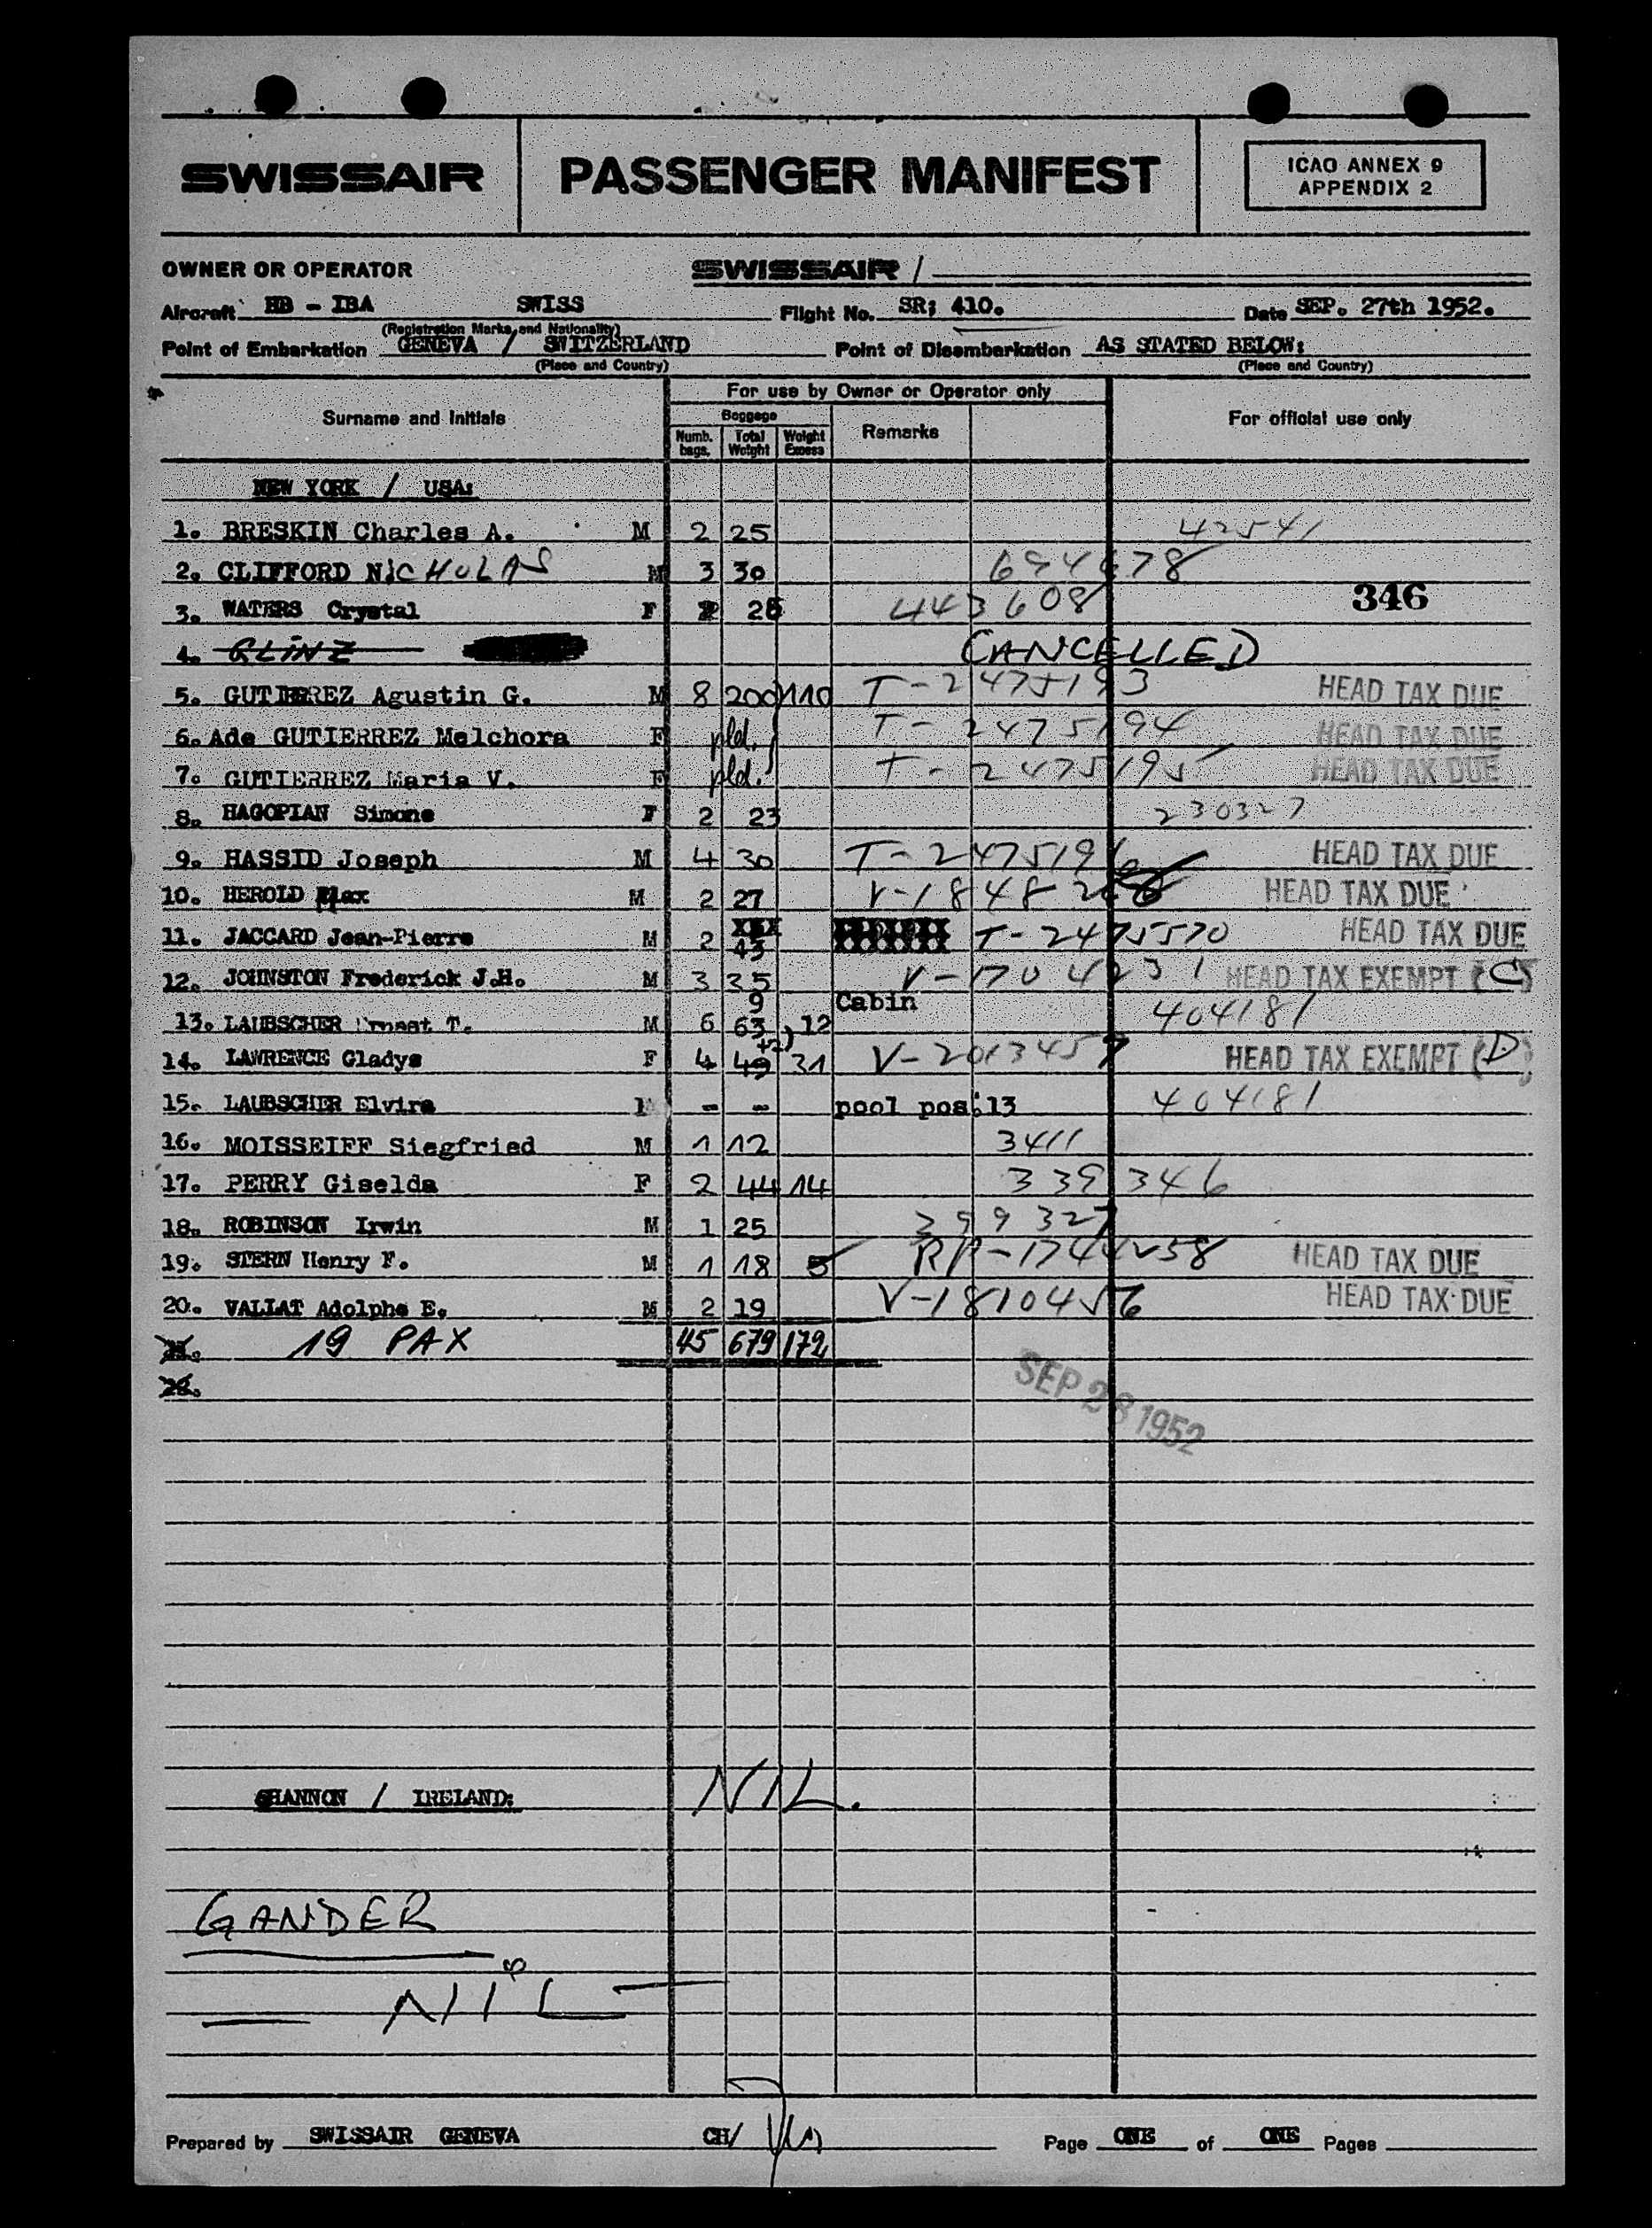 SWISSAIR PASSENGER MANIFEST ICAO ANNEX 9
APPENDIX 2
OWNER OR OPERATOR SWISSAIR /
Aircraft HB - IBA SWISS Flight No. SR; 410. Date SEP. 27th 1952.
(Registration Marks and Nationality)
Point of Embarkation GENEVA / SWITZERLAND Point of Disembarkation AS STATED BELOW:
(Place and Country) (Place and Country)
For use by Owner or Operator only
Surname and Initials Baggage Remarks For official use only
Numb. bags. Total Weight Weight Excess
NEW YORK / USA:
1. BRESKIN Charles A. M 2 25 42541
2. CLIFFORD NICHOLAS M 3 30 694678
3. WATERS Crystal F 2 25 443608 346
4. GLINZ CANCELLED
5. GUTIERREZ Agustin G. M 8 200 110 T-2475193 HEAD TAX DUE
6. Ade GUTIERREZ Melchora F pld. T-2475194 HEAD TAX DUE
7. GUTIERREZ Maria V. F pld. T-2475195 HEAD TAX DUE
8. HAGOPIAN Simone F 2 23 230327
9. HASSID Joseph M 4 30 T-2475196 HEAD TAX DUE
10. HEROLD Max M 2 27 V-1848 HEAD TAX DUE
11. JACCARD Jean-Pierre M 2 XXX 43 T-2475570 HEAD TAX DUE
12. JOHNSTON Frederick J.H. M 3 35 V-1704231 HEAD TAX EXEMPT (C)
13. LAUBSCHER Ernest T. M 6 9 63 12 Cabin 404181
14. LAWRENCE Gladys F 4 49 31 V-2013459 HEAD TAX EXEMPT (D)
15. LAUBSCHER Elvira F - - pool pos:13 404181
16. MOISSEIFF Siegfried M 1 12 3411
17. PERRY Giselda F 2 44 14 339346
18. ROBINSON Irwin M 1 25 399327
19. STERN Henry F. M 1 18 5 RP-1744258 HEAD TAX DUE
20. VALLAT Adolphe E. M 2 19 V-1810456 HEAD TAX DUE
21. 19 PAX 45 679 172
22.
SEP 28 1952
SHANNON / IRELAND: NIL.
GANDER
NIL
Prepared by SWISSAIR GENEVA CH/ Page ONE of ONE Pages